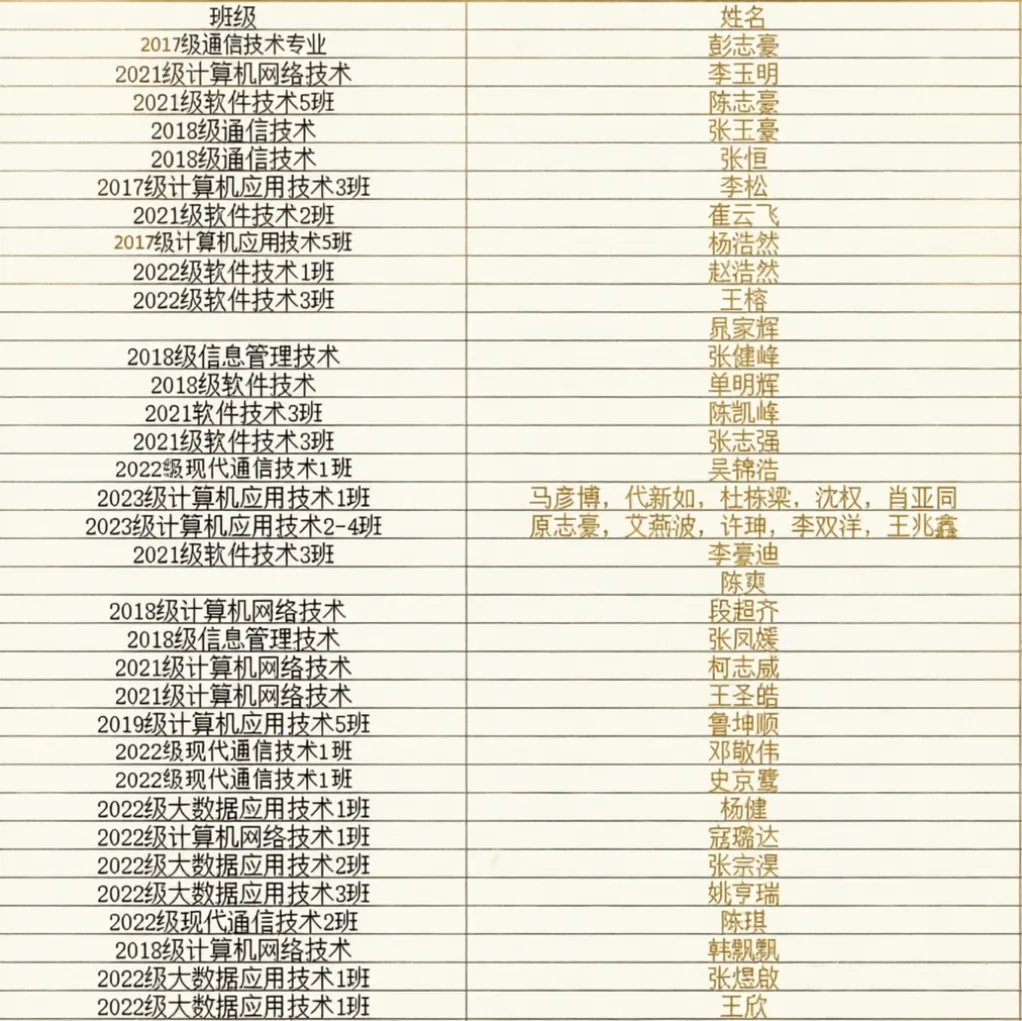 班级 姓名
2017级通信技术专业 彭志豪
2021级计算机网络技术 李玉明
2021级软件技术5班 陈志豪
2018级通信技术 张玉豪
2018级通信技术 张恒
2017级计算机应用技术3班 李松
2021级软件技术2班 崔云飞
2017级计算机应用技术5班 杨浩然
2022级软件技术1班 赵浩然
2022级软件技术3班 王榕
晁家辉
2018级信息管理技术 张健峰
2018级软件技术 单明辉
2021软件技术3班 陈凯峰
2021级软件技术3班 张志强
2022级现代通信技术1班 吴锦浩
2023级计算机应用技术1班 马彦博，代新如，杜栋梁，沈权，肖亚同
2023级计算机应用技术2-4班 原志豪，艾燕波，许珅，李双洋，王兆鑫
2021级软件技术3班 李豪迪
陈爽
2018级计算机网络技术 段超齐
2018级信息管理技术 张凤媛
2021级计算机网络技术 柯志威
2021级计算机网络技术 王圣皓
2019级计算机应用技术5班 鲁坤顺
2022级现代通信技术1班 邓敬伟
2022级现代通信技术1班 史京鹭
2022级大数据应用技术1班 杨健
2022级计算机网络技术1班 寇璐达
2022级大数据应用技术2班 张宗淏
2022级大数据应用技术3班 姚亨瑞
2022级现代通信技术2班 陈琪
2018级计算机网络技术 韩飘飘
2022级大数据应用技术1班 张煜啟
2022级大数据应用技术1班 王欣